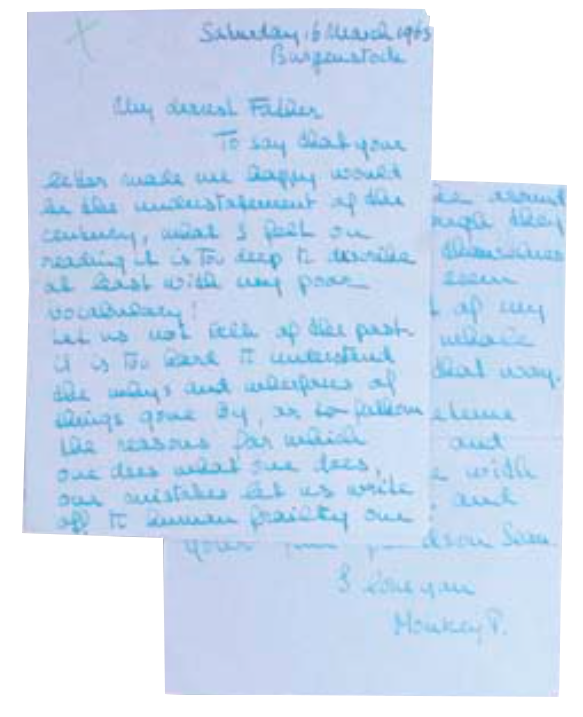 Saturday 16 March 1963
Burgenstock
My dearest Father
To say that your
letter made me happy would
be the understatement of the
century, what I felt on
reading it is too deep to describe
at least with my poor
vocabulary!
Let us not talk of the past
it is too hard to understand
the whys and wherefores of
things gone by, or to fathom
the reasons for which
one does what one does,
our mistakes let us write
off to human frailty one
around
they
themselves
seem
of my
whole
that way.
and
with
and
your Sean
I love you
Monkey P.